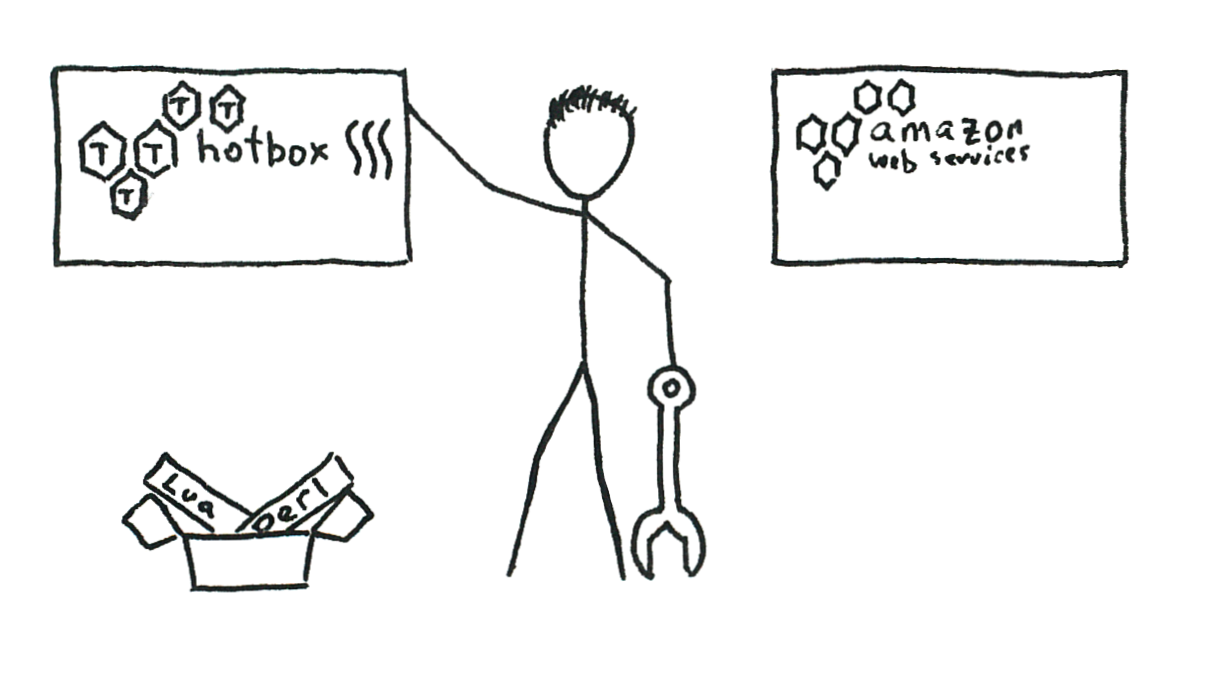 T T
T T hotbox
T
amazon
web services
Lua
perl